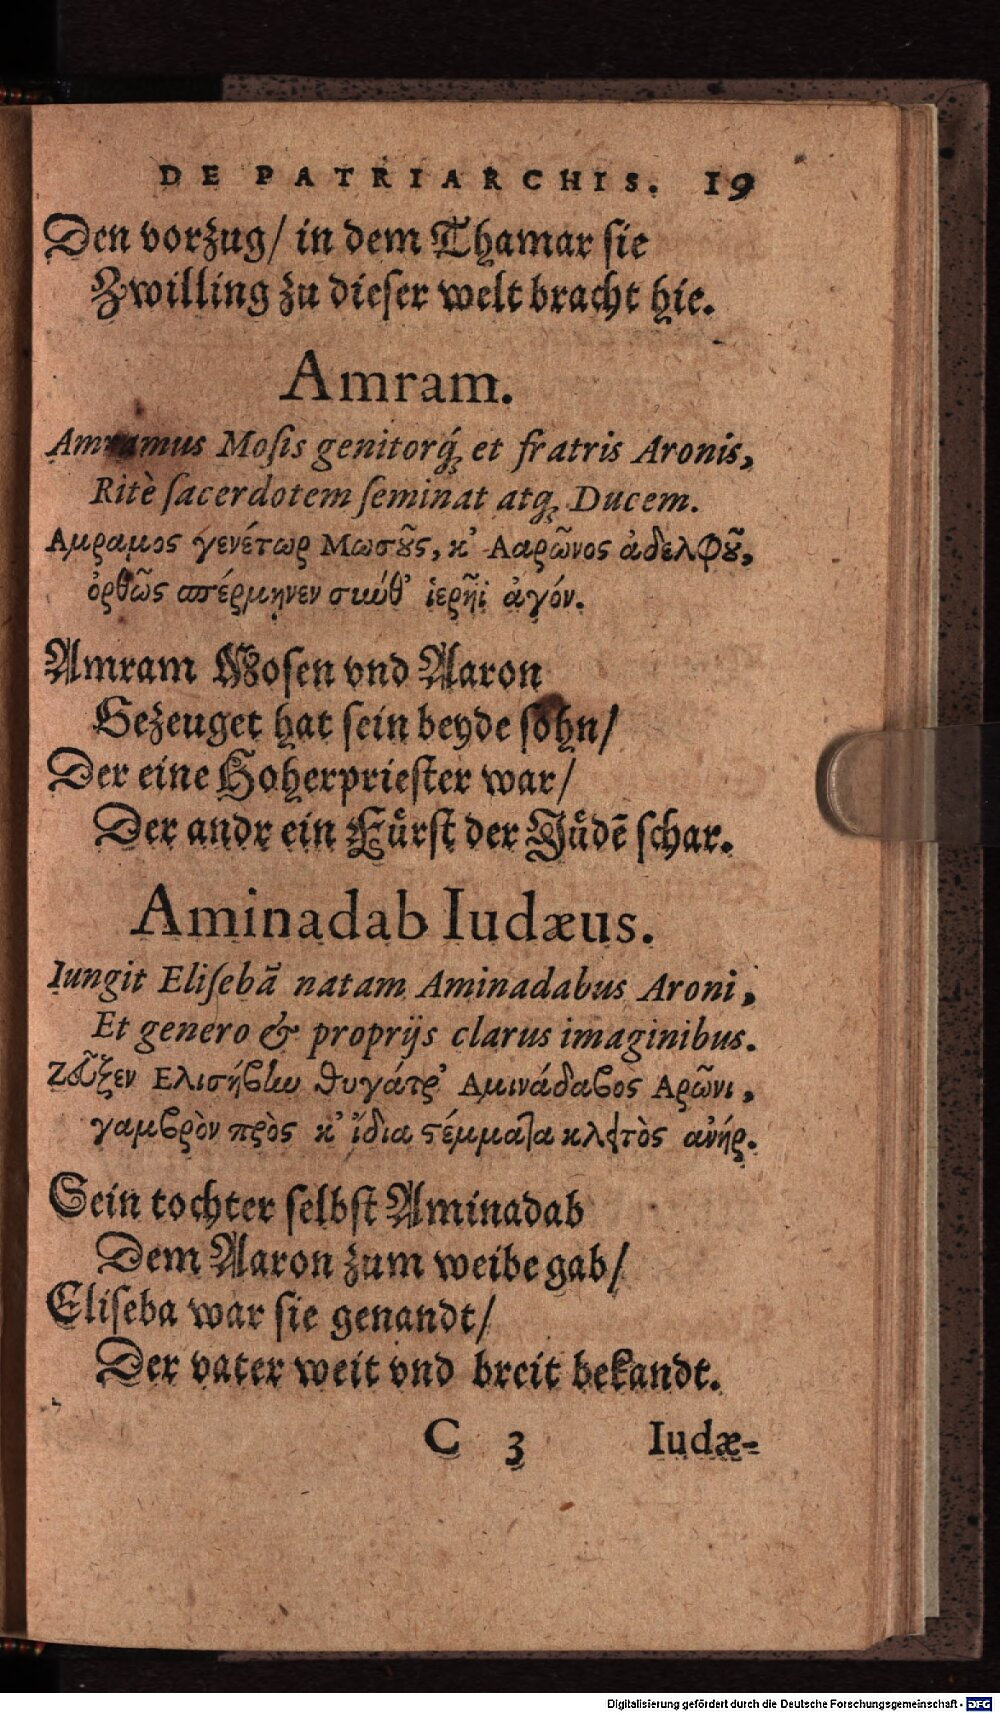 DE PATRIARCHIS. 19
Den vorzug/ in dem Thamar sie
Zwilling zu dieser welt bracht hie.
Amram.
Amramus Mosis genitorq́ꝫ et fratris Aronis,
Ritè sacerdotem seminat atqꝫ Ducem.
Αμραμος γενέτωρ Μωσοῦς, κ' Ααρῶνος ἀδελφοῦ,
ὀρθῶς σπέρμηνεν σιωθ' ἱερῆϊ ἀγόν.
Amram Mosen vnd Aaron
Gezeuget hat sein beyde sohn/
Der eine Hoherpriester war/
Der andr ein Fürst der Jüdē schar.
Aminadab Iudæus.
Iungit Elisebā natam Aminadabus Aroni,
Et genero & proprijs clarus imaginibus.
Ζεῦξεν Ελισήβην θυγάτρ' Αμινάδαβος Αρῶνι,
γαμβρὸν πρὸς κ' ἴδια στέμματα κλειτὸς ἀνήρ.
Sein tochter selbst Aminadab
Dem Aaron zum weibe gab/
Eliseba war sie genandt/
Der vater weit vnd breit bekandt.
C 3 Iudæ-
Digitalisierung gefördert durch die Deutsche Forschungsgemeinschaft - DFG